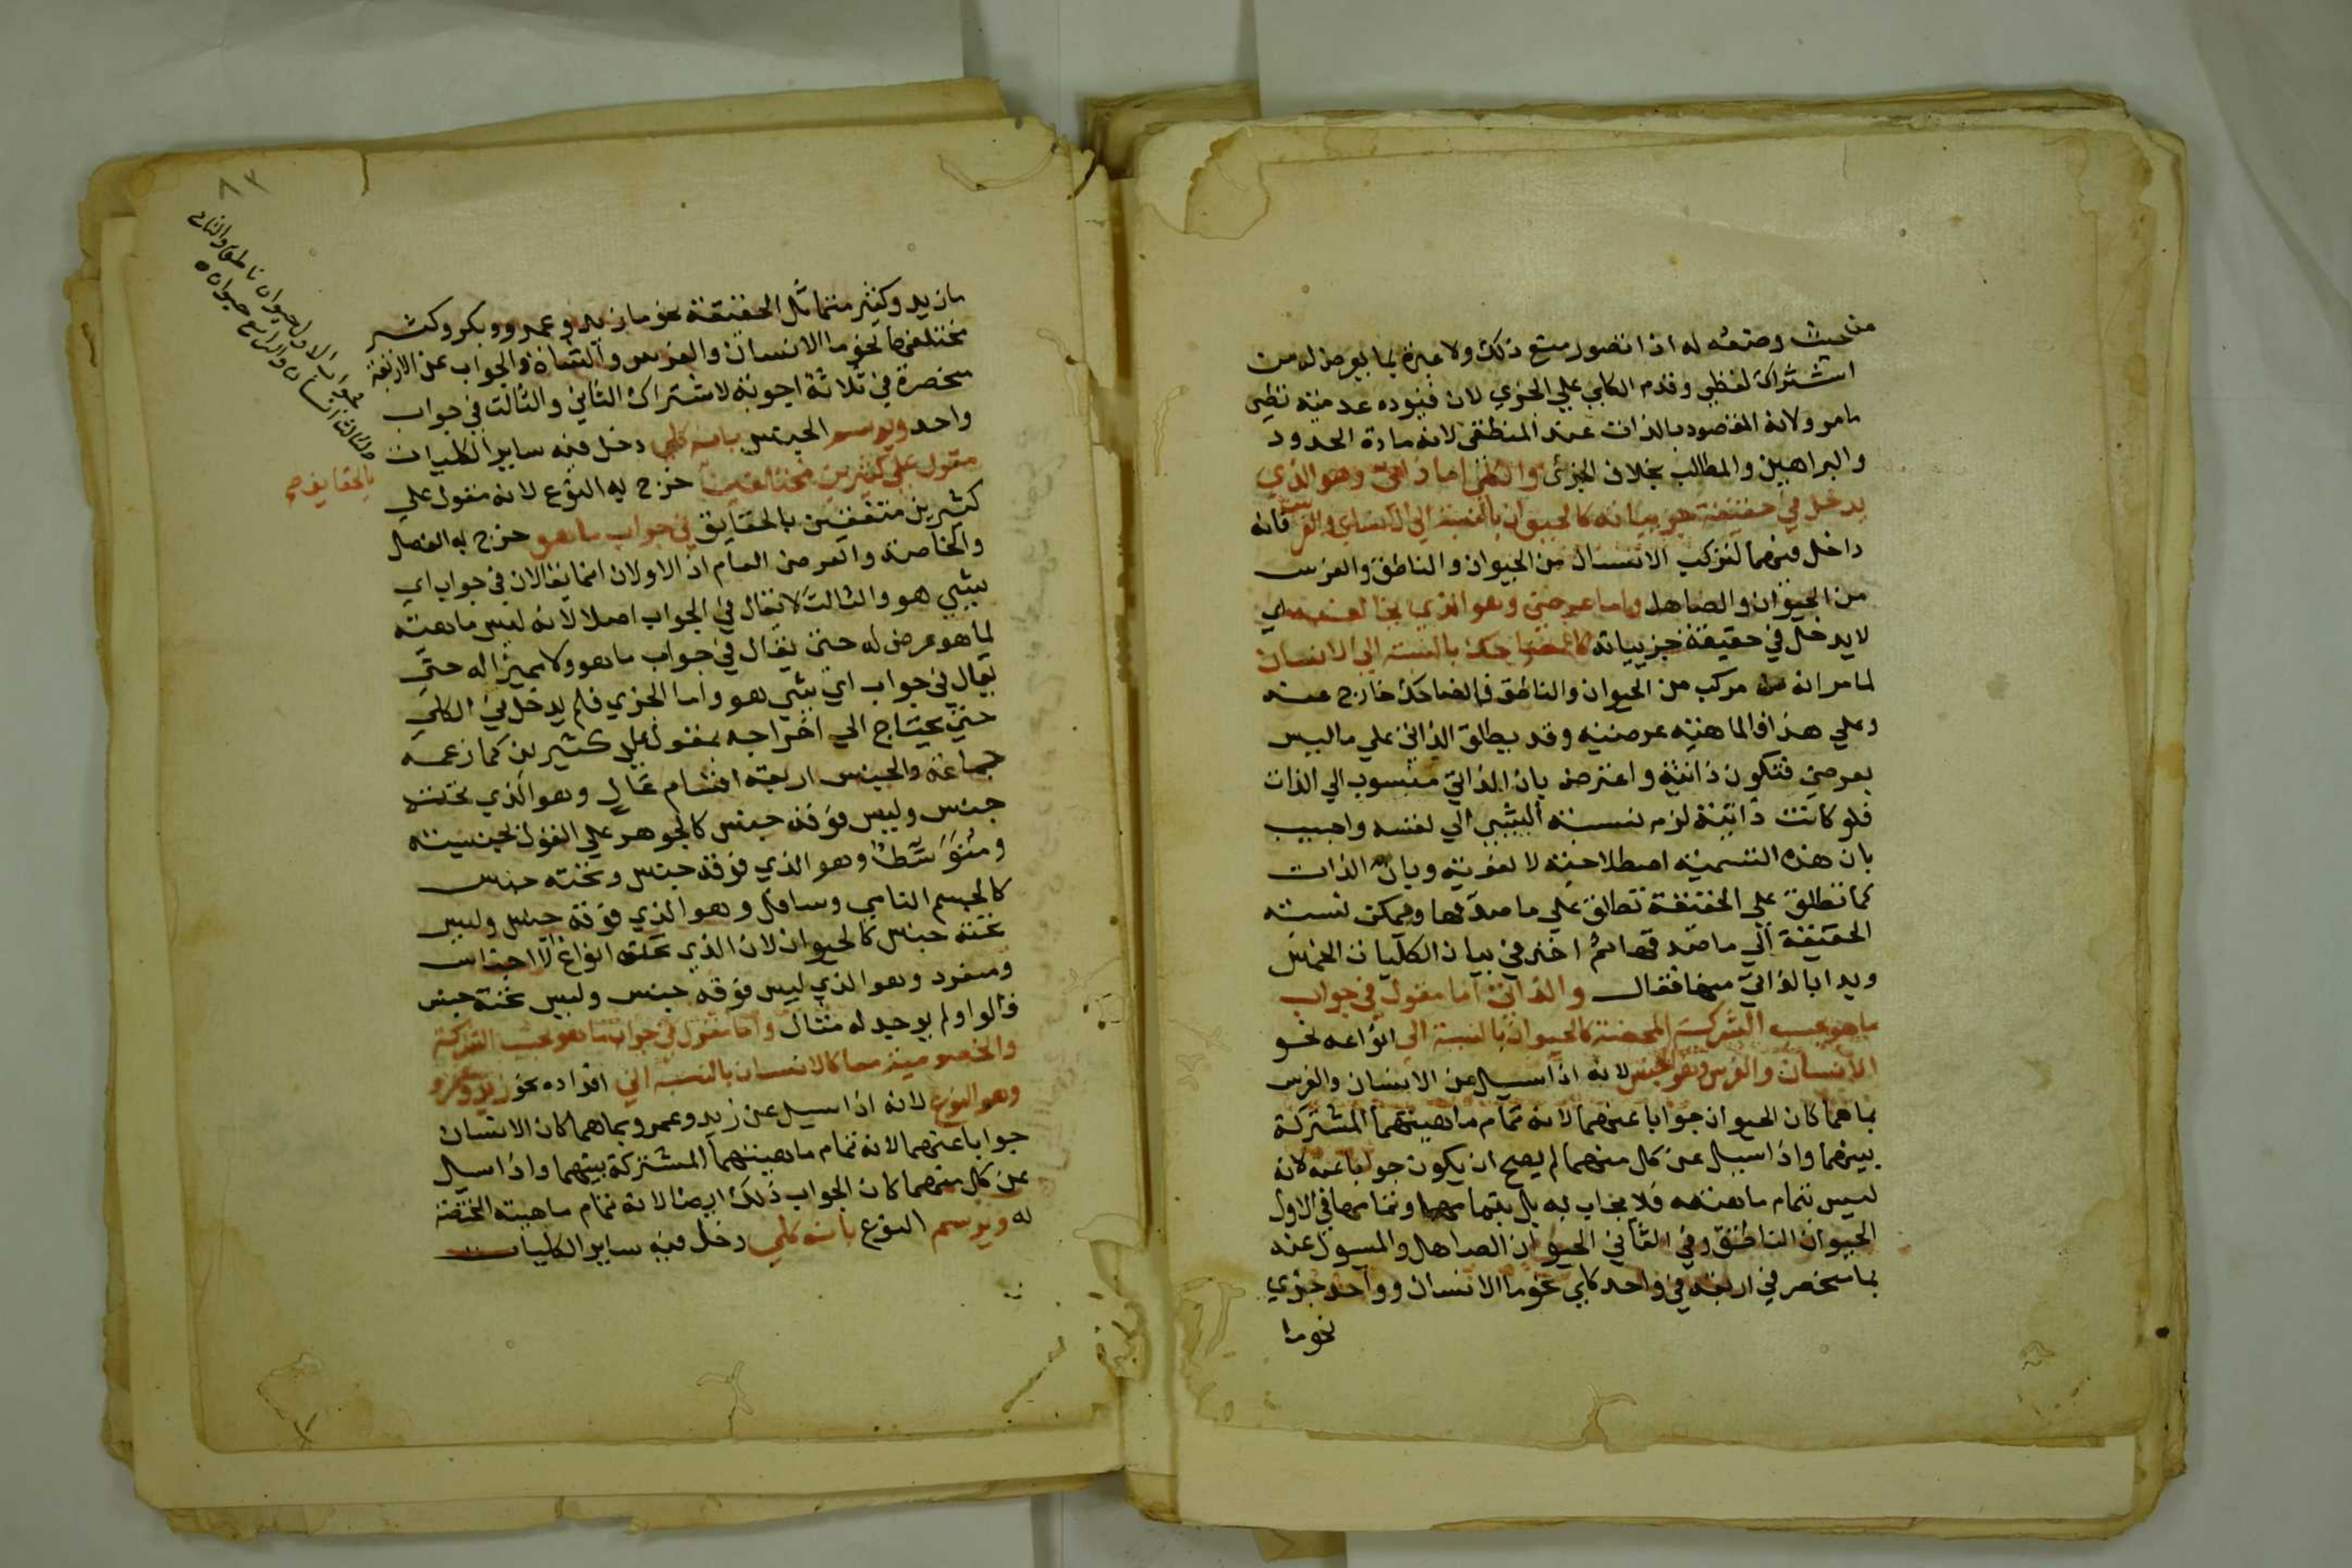 من حيث وضعه له اذا تصور منع ذلك ولا عبرة بما يعرض له من
اشتراك لفظي وقدم الكلي علي الجزي لان قيوده عدمية نظير
مامر ولانه المقصود بالذات عند المنطقي لانه مادة الحدود
والبراهين والمطالب بخلاف الجزئ والكلي اما ذاتي وهو الذي
يدخل في حقيقة جزيياته كالحيوان بالنسبة الي الانسان والفرس فانه
داخل فيهما لتركب الانسان من الحيوان والناطق والفرس
من الحيوان والصاهل واما عرضي وهو الذي يخالفه اي
لا يدخل في حقيقة جزيياته كالضاحك بالنسبة الي الانسان
لما مر انه مركب من الحيوان والناطق فالضاحك خارج عنه
وعلي هذا فالماهية عرضية وقد يطلق الذاتي علي ما ليس
بعرضي فتكون ذاتية واعترض بان الذاتي منسوب الي الذات
فلو كانت ذاتية لزم نسبة الشيي الي نفسه واجيب
بان هذه التسمية اصطلاحية لا لغوية وبان الذات
كما تطلق علي الحقيقة تطلق علي ما صدقها ويمكن نسبة
الحقيقة الي ما صدقها ثم اخذ في بيان الكليات الخمس
وبدا بالذاتي منها فقال والذاتي اما مقول في جواب
ما هو بحسب الشركة المحضة كالحيوان بالنسبة الي انواعه نحو
الانسان والفرس وهو الجنس لانه اذا سيل عن الانسان والفرس
بما هما كان الحيوان جوابا عنهما لانه تمام ماهيتهما المشتركة
بينهما واذا سيل عن كل منهما لم يصح ان يكون جوابا عنه لانه
ليس تمام ماهيته فلا يجاب به بل بتمامها وتمامها في الاول
الحيوان الناطق وفي الثاني الحيوان الصاهل والمسول عنه
بما منحصر في اربعة في واحد كلي نحو ما الانسان وواحد جزي
نحو ما
٨٣
ما زيد وكثير متماثل الحقيقة نحو ما زيد وعمرو وبكر وكثير
مختلفها نحو ما الانسان والفرس والشاة والجواب عن الاربعة
منحصرة في ثلاثة اجوبة لاشتراك الثاني والثالث في جواب
واحد ويرسم الجنس بانه كلي دخل فيه ساير الكليات
مقول علي كثيرين مختلفين خرج به النوع لانه مقول علي
كثيرين متفقين بالحقايق في جواب ما هو خرج به الفصل
والخاصة والعرض العام اذ الاولان انما يقالان في جواب اي
شيي هو والثالث لا يقال في الجواب اصلا لانه ليس ماهية
لما هو عرض له حتى يقال في جواب ما هو ولا مميزا له حتى
يقال في جواب اي شيي هو واما الجزي فلم يدخل في الكلي
حتي يحتاج الي اخراجه بمقول علي كثيرين كما زعمه
جماعة والجنس اربعة اقسام عال وهو الذي تحته
جنس وليس فوقه جنس كالجوهر علي القول بجنسيته
ومتوسط وهو الذي فوقه جنس وتحته جنس
كالجسم النامي وسافل وهو الذي فوقه جنس وليس
تحته جنس كالحيوان لان الذي تحته انواع لا اجناس
ومنفرد وهو الذي ليس فوقه جنس وليس تحته جنس
قالوا ولم يوجد له مثال واما مقول في جواب ما هو بحسب الشركة
والخصوصية معا كالانسان بالنسبة الي افراده نحو زيد وعمرو
وهو النوع لانه اذا سيل عن زيد وعمرو بما هما كان الانسان
جوابا عنهما لانه تمام ماهيتهما المشتركة بينهما واذا سيل
عن كل منهما كان الجواب ذلك ايضا لانه تمام ماهيته المختصة
له ويرسم النوع بانه كلي دخل فيه ساير الكليات
بالحقايق صح
فجواب الاول حيوان ناطق والثاني
والثالث انسان والرابع حيوان